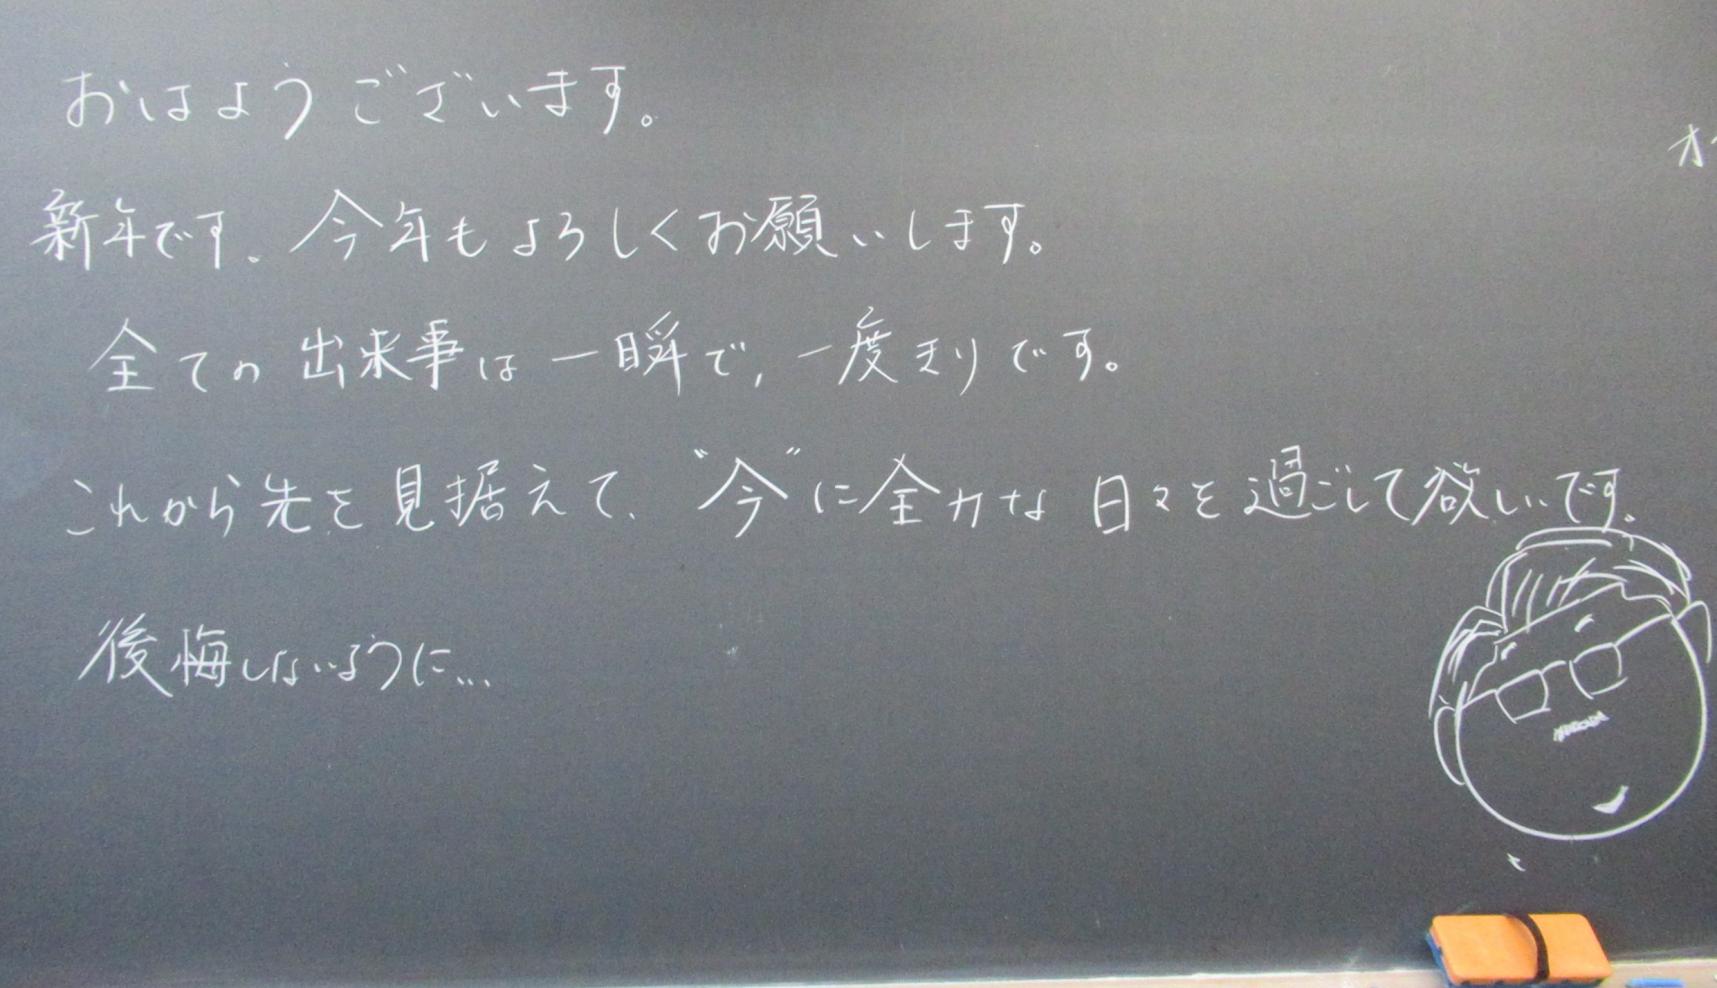 おはようございます。
新年です。今年もよろしくお願いします。
全ての出来事は一瞬で、一度きりです。
これから先を見据えて、“今”に全力な日々を過ごして欲しいです。
後悔しないように…